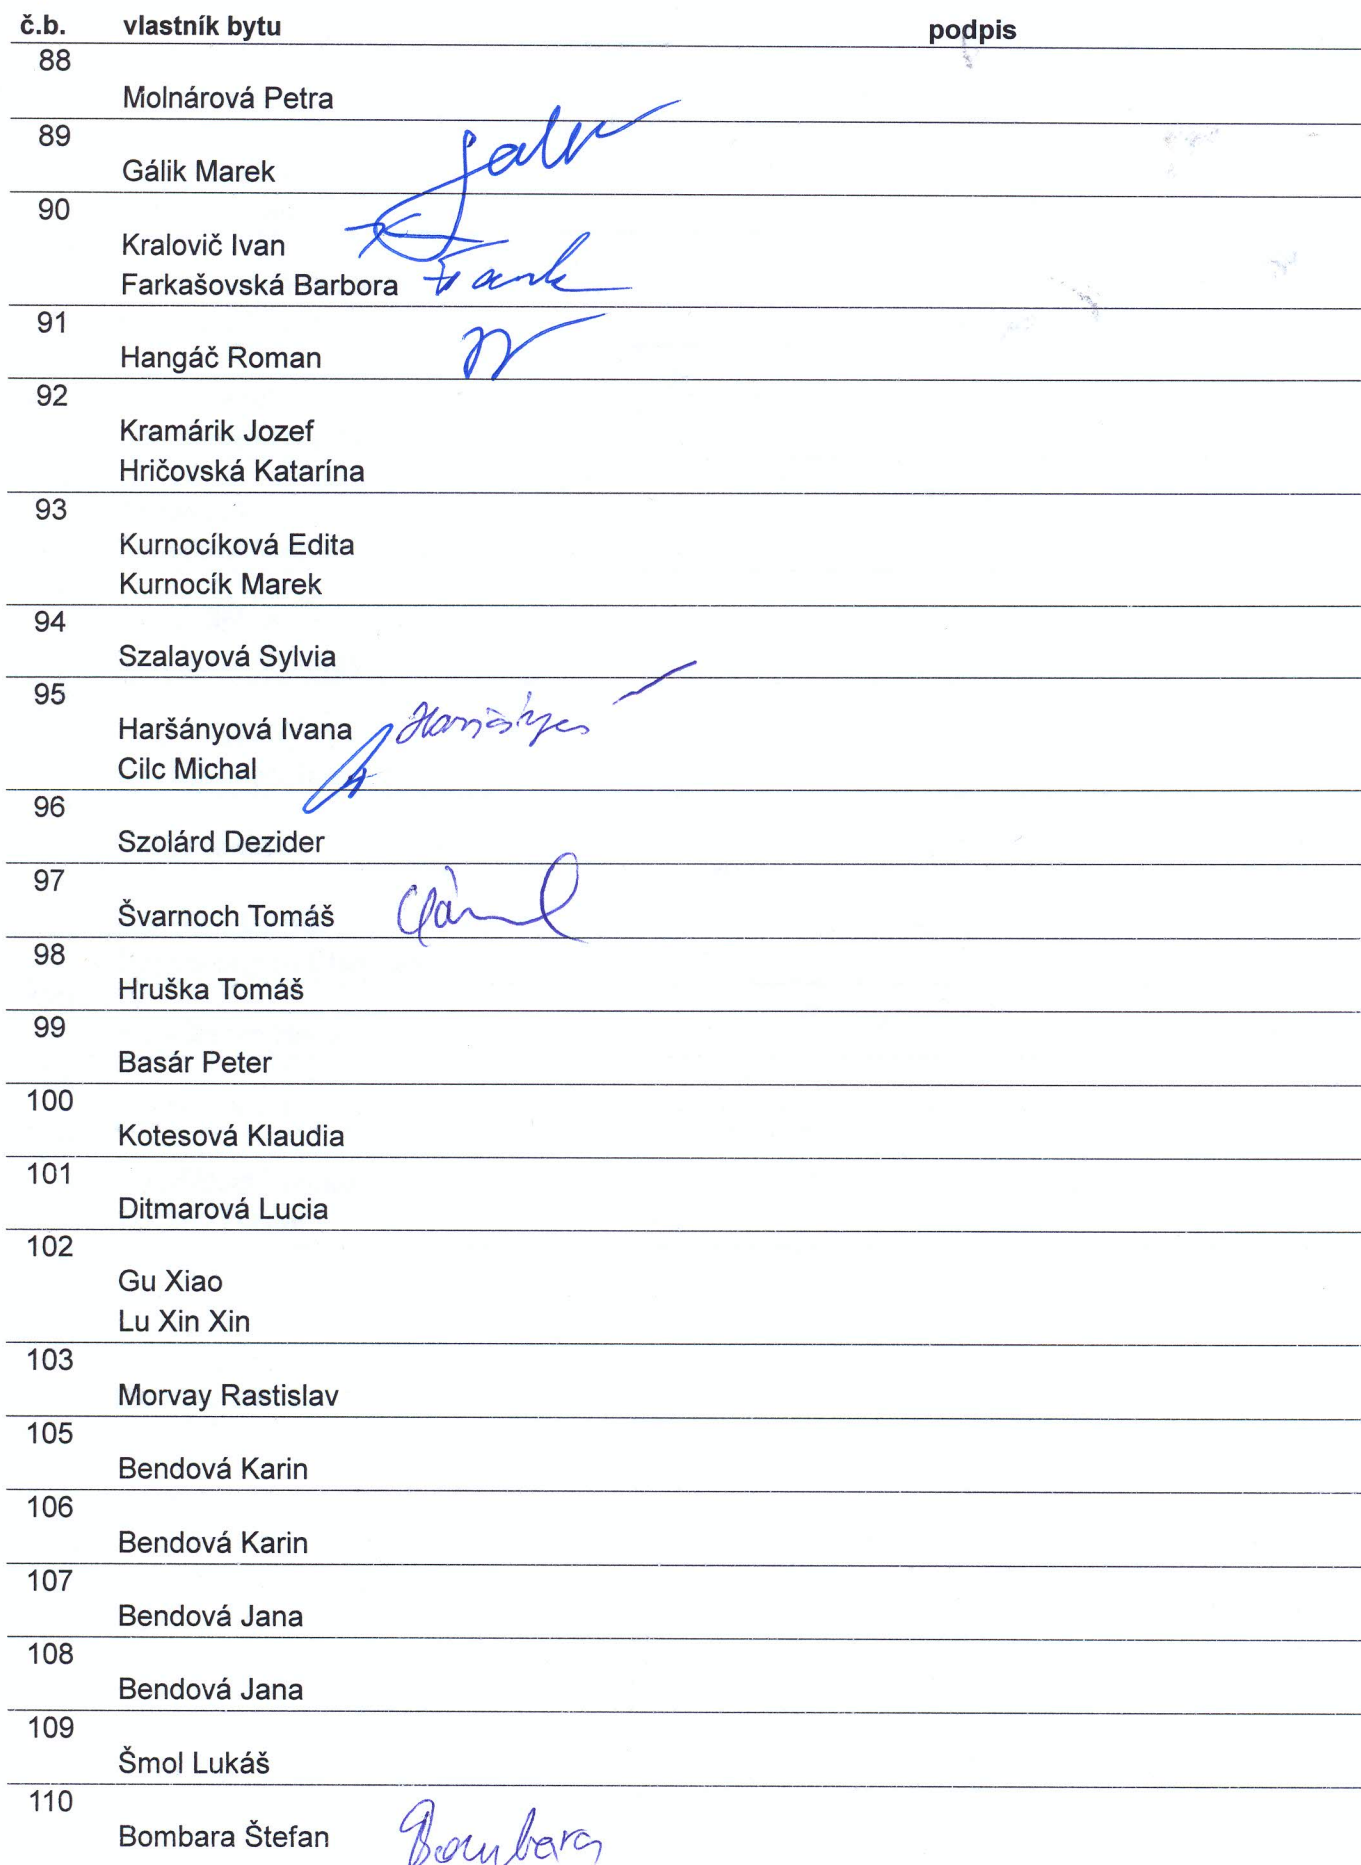 č.b. vlastník bytu podpis
88
Molnárová Petra
89
Gálik Marek
90
Kralovič Ivan
Farkašovská Barbora
91
Hangáč Roman
92
Kramárik Jozef
Hričovská Katarína
93
Kurnocíková Edita
Kurnocík Marek
94
Szalayová Sylvia
95
Haršányová Ivana
Cilc Michal
96
Szolárd Dezider
97
Švarnoch Tomáš
98
Hruška Tomáš
99
Basár Peter
100
Kotesová Klaudia
101
Ditmarová Lucia
102
Gu Xiao
Lu Xin Xin
103
Morvay Rastislav
105
Bendová Karin
106
Bendová Karin
107
Bendová Jana
108
Bendová Jana
109
Šmol Lukáš
110
Bombara Štefan Bombara